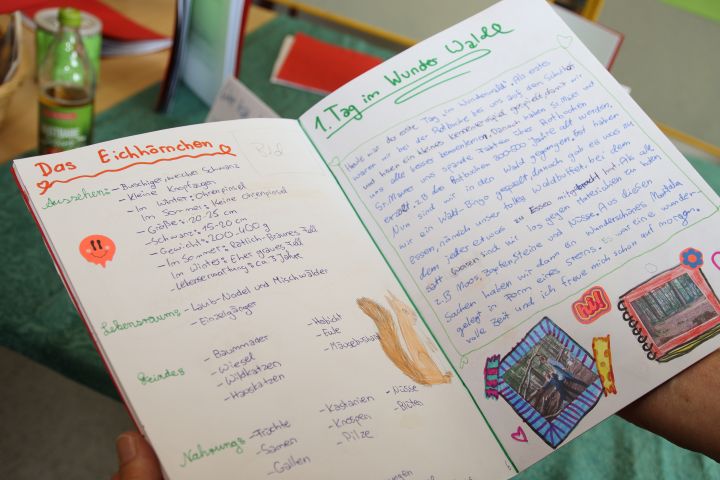 Das Eichhörnchen
Aussehen: - Buschiger weicher Schwanz
- Kleine Knopfaugen
- Im Winter: Ohrenpinsel
Im Sommer: Keine Ohrenpinsel
- Größe: 20-25 cm
- Schwanz: 15-20 cm
- Gewicht: 200-400 g
- Im Sommer: Rötlich-Braunes Fell
Im Winter: Eher graues Fell
- Lebenserwartung: ca. 3 Jahre
Lebensraum: - Laub-Nadel und Mischwälder
- Einzelgänger
Feinde: - Baummarder
- Wiesel
- Wildkatzen
- Hauskatzen
- Habicht
- Eule
- Mäusebussard
Nahrung: - Früchte
- Samen
- Gallen
- Kastanien
- Knospen
- Pilze
- Nüsse
- Blüten
Bild
1. Tag im Wunder Walde
Heute war der erste Tag „im Wunderwald". Als erstes
waren wir bei der Rotbuche bei uns auf dem Schulhof
und haben ein kleines kennenlernspiel gespielt, damit wir
uns alle besser kennenlernen. Danach haben Sr. Maur und
Sr. Maria uns spannende Fakten über Rotbuchen
erzählt. Z.B. das Rotbuchen 200-300 Jahre alt werden.
Nun sind wir in den Wald gegangen. Dort haben
wir ein Wald-Bingo gespielt, danach gab es was zu
Essen, nämlich unser tolles Waldbuffet, bei dem
dem jeder etwas zu Essen mitgebracht hat. Als alle
satt waren sind wir los gegangen Materialien zu holen
z.B. Moos, Zapfen, Steine und Nüsse. Aus diesen
Sachen haben wir dann ein Wunderschönes Mandala
gelegt in Form eines Sterns. Es war eine wunder-
volle Zeit und ich freue mich schon auf morgen.